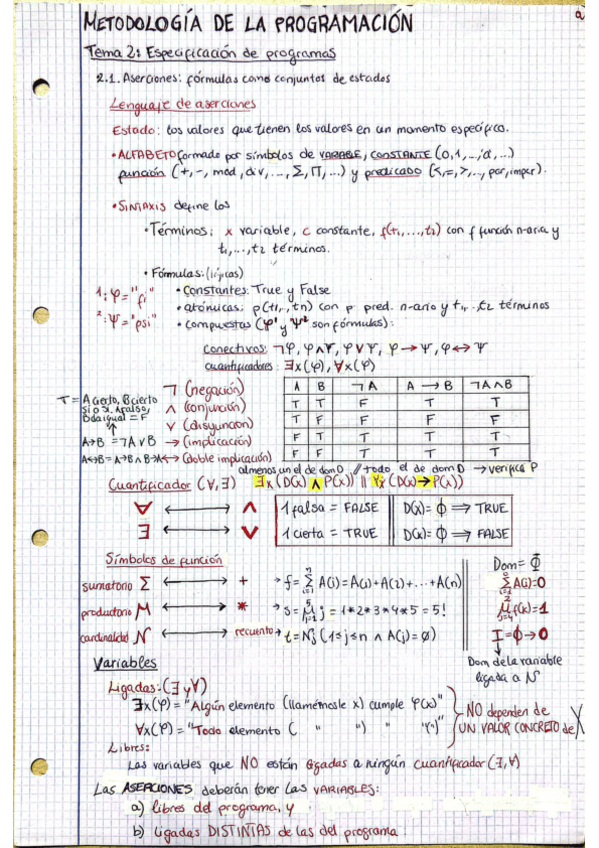 METODOLOGÍA DE LA PROGRAMACIÓN
Tema 2: Especificación de programas
2.1. Aserciones: fórmulas como conjuntos de estados
Lenguaje de aserciones
Estado: los valores que tienen los valores en un momento específico.
• ALFABETO formado por símbolos de VARIABLE, CONSTANTE (0,1,...,'a',...)
función (+,-, mod, div, ..., Σ, Π, ...) y predicado (<,=,>,..., par, impar).
• SINTAXIS define los
• Términos: x variable, c constante, f(t1,...,t2) con f función n-aria y
t1,...,t2 términos.
• Fórmulas: (lógicas)
1: φ = "fi"
2: Ψ = "psi"
• Constantes: True y False
• atómicas: p(t1,..,tn) con p pred. n-ario y t1,..t2 términos
• compuestas (φ¹ y Ψ² son fórmulas):
Conectivos: ¬φ, φ∧Ψ, φ∨Ψ, φ→Ψ, φ↔Ψ
cuantificadores: ∃x(φ), ∀x(φ)
T = A cierto, B cierto
si o si, A falso,
B da igual = F
A→B = ¬A∨B
A↔B = A→B ∧ B→A
¬ (negación)
∧ (conjunción)
∨ (disyunción)
→ (implicación)
↔ (doble implicación)
A B ¬A A → B ¬A∧B
T T F T T
T F F F F
F T T T T
F F T T T
almenos un el de dom D // todo el de dom D → verifica P
Cuantificador (∀,∃) ∃x (D(x) ∧ P(x)) || ∀x (D(x) → P(x))
∀ ↔ ∧ 1 falsa = FALSE D(x) = ∅ ⟹ TRUE
∃ ↔ ∨ 1 cierta = TRUE D(x) = ∅ ⟹ FALSE
Símbolos de función
Dom = ∅
sumatorio Σ ↔ + → f = Σ A(i) = A(1) + A(2) + ... + A(n)
Σ A(i) = 0
productorio M ↔ * → s = M j = 1*2*3*4*5 = 5!
M f(k) = 1
cardinalidad N ↔ recuento → t = Nj (1≤j≤n ∧ A(j) = 0)
I = ∅ → 0
Dom de la variable
ligada a N
Variables
Ligadas: (∃ y ∀)
∃x(φ) = "Algún elemento (llamémosle x) cumple φ(x)"
∀x(φ) = "Todo elemento ( " " ) " "φ(")"
NO dependen de
UN VALOR CONCRETO de X
Libres:
Las variables que NO están ligadas a ningún cuantificador (∃,∀)
Las ASERCIONES deberán tener las VARIABLES:
a) libres del programa, y
b) ligadas DISTINTAS de las del programa